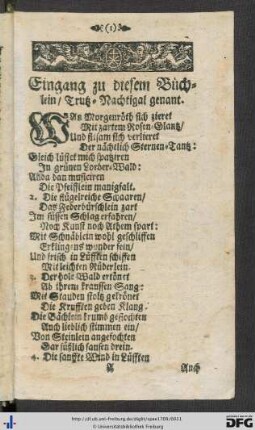 (1)
Eingang zu diesem Büch-
lein/ Trutz-Nachtigal genant.
WAn Morgenröth sich zieret
Mit zartem Rosen-Glantz/
Und sitsam sich verlieret
Der nächtlich Sternen-Tantz:
Gleich lüstet mich spatziren
Im grünen Lorber-Wald:
Alda dan musiciren
Die Pfeifflein manigfalt.
2. Die flügelreiche Schaaren/
Das Federbürschlein zart
Im süssen Schlag erfahren/
Noch Kunst noch Athem spart:
Mit Schnäblein wohl geschliffen
Erklingens wunder fein/
Und frisch in Lüfften schiffen
Mit leichten Rüderlein.
3. Der hole Wald ertönet
Ab ihrem kraussen Sang:
Mit Stauden stoltz gekrönet
Die Krufften geben Klang.
Die Bächlein krumb geflochten
Auch lieblich stimmen ein/
Von Steinlein angefochten
Gar süßlich sausen drein.
4. Die sanffte Wind in Lüfften
A Auch
http://dl.ub.uni-freiburg.de/diglit/spee1709/0021
© Universitätsbibliothek Freiburg
gefördert durch die
DFG